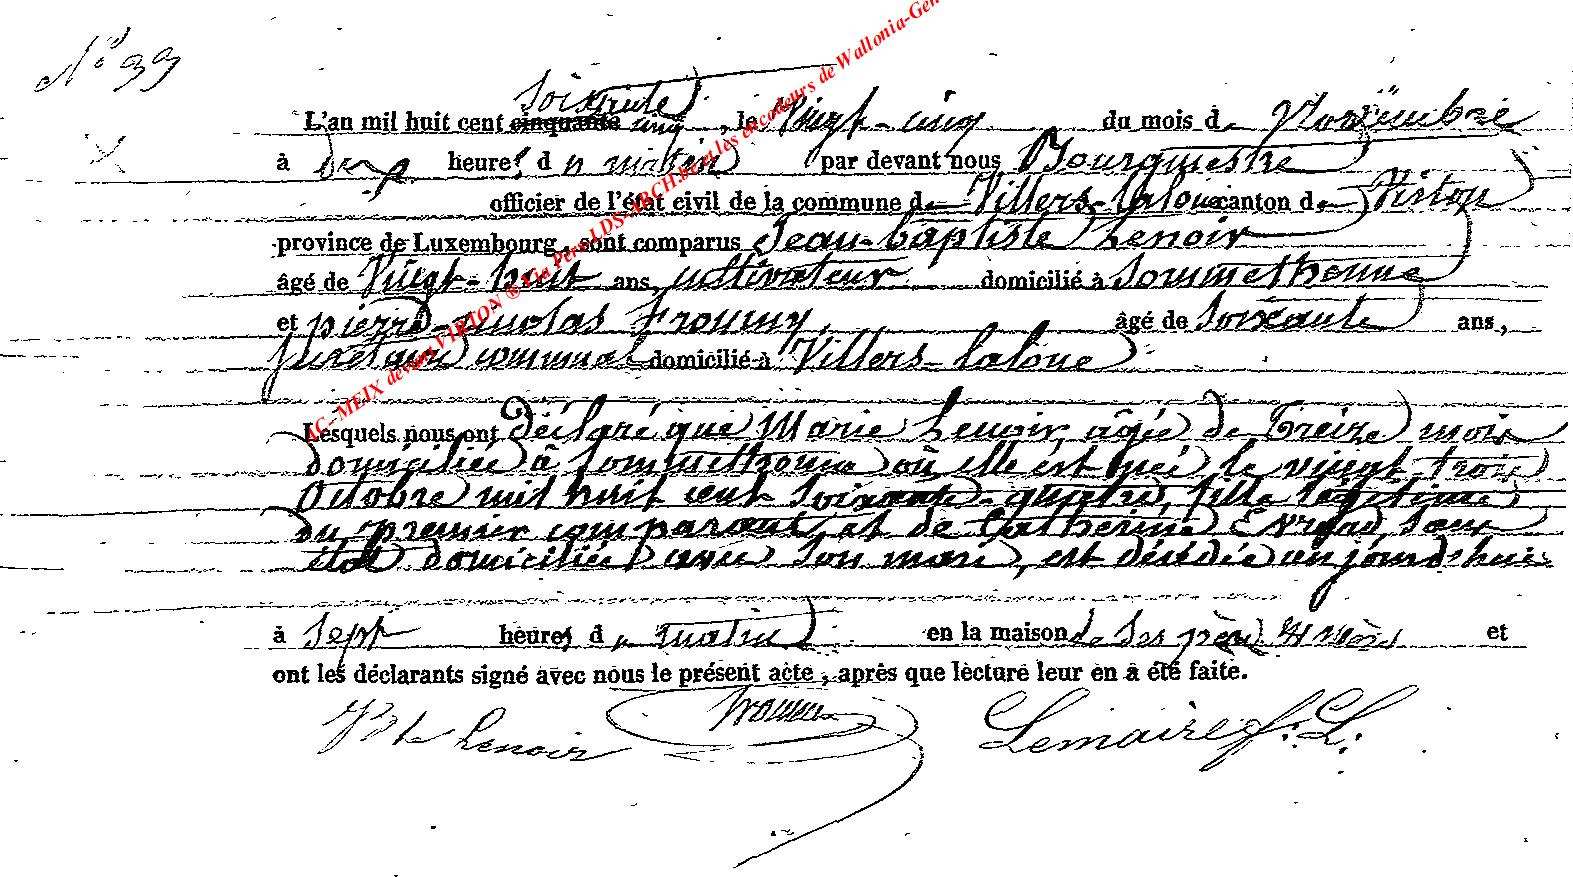 N° 33
soixante
L'an mil huit cent cinquante cinq, le Vingt-cinq du mois de Novembre
à dix heures du matin par devant nous Bourgmestre
officier de l'état civil de la commune de Villers-laloue canton de Virton
province de Luxembourg, sont comparus Jean-baptiste Lenoir
âgé de Vingt-huit ans, cultivateur domicilié à Sommethonne
et pierre-nicolas Fromny, âgé de soixante ans,
secrétaire communal domicilié à Villers-laloue
Lesquels nous ont déclaré que Marie Lenoir, âgée de Treize mois
domiciliée à Sommethonne où elle est née, le vingt trois
Octobre mil huit cent soixante-quatre, fille légitime
du premier comparant et de Catherine Evrard, sans
état domiciliée avec son mari, est décédée aujourd'hui
à Sept heures du matin en la maison de ses père et mère et
ont les déclarants signé avec nous le présent acte, après que lecture leur en a été faite.
JBte Lenoir Lemaire f.: L.:
AC - MEIX devant VIRTON ® Les Pers LDS-ARCH.be et les encodeurs de Wallonia-Gen